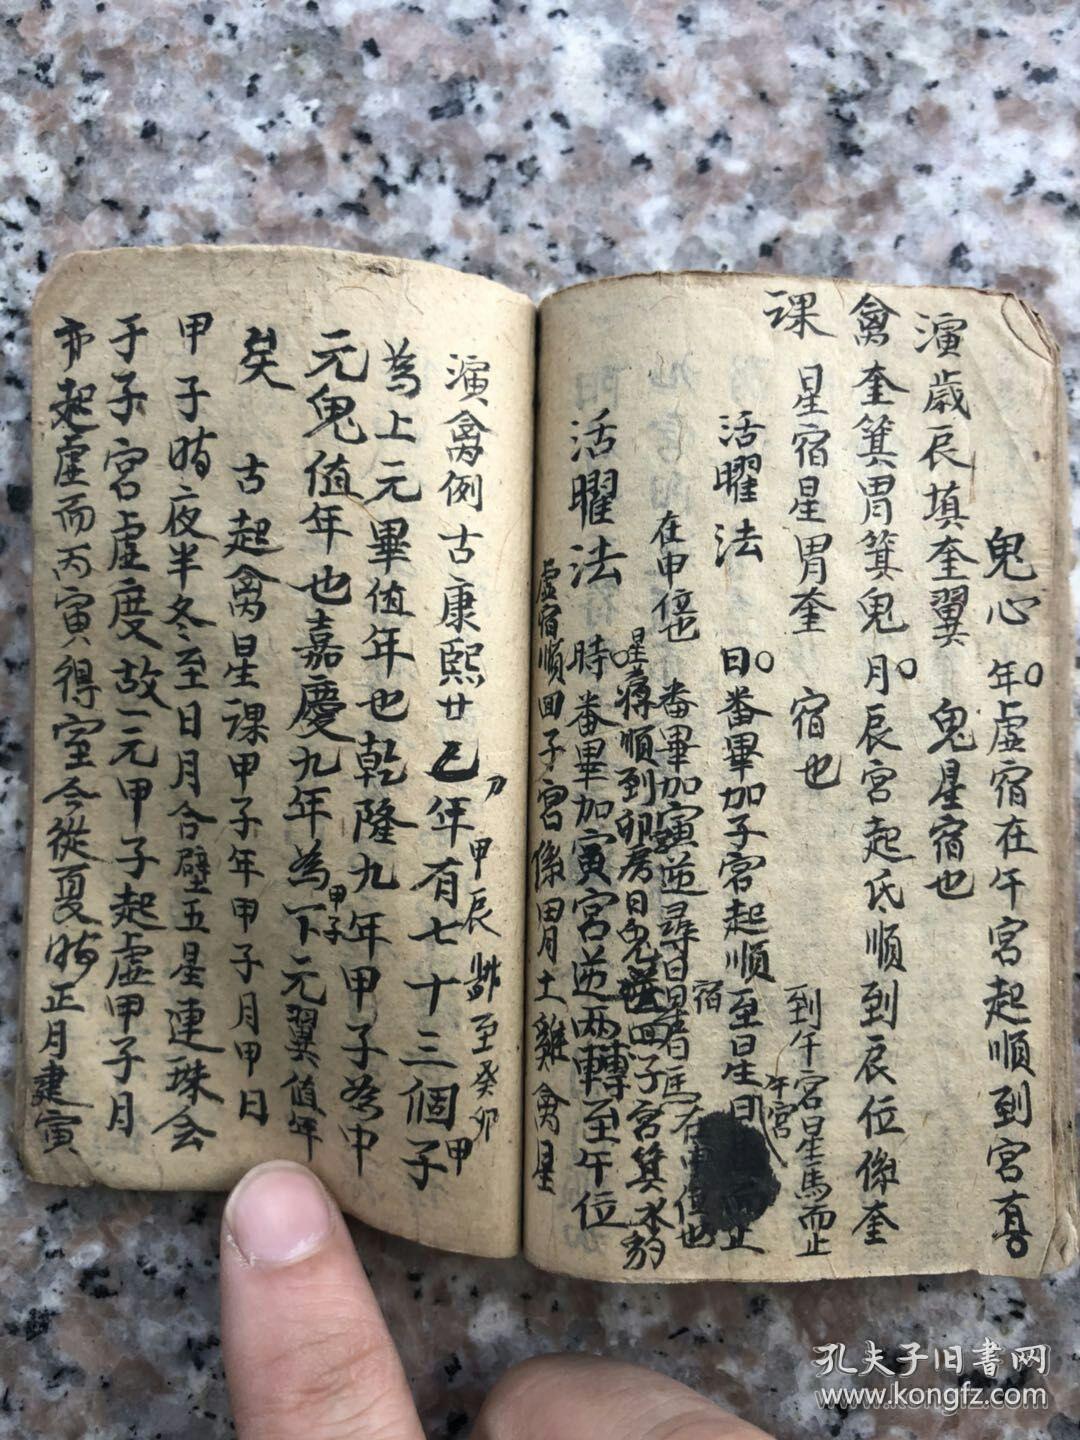 鬼心　年虛宿在午宮起順到宮真
演歲辰填奎翼　鬼星宿也
禽奎箕胃箕鬼　月辰宮起氐順到辰位係奎
課　星宿星胃奎　宿也
到午宮星馬而止
午宮
活曜法　日畨畢加子宮起順至日生
宿
在申位也　畨畢加寅逆尋日
星 順到卯房日兔 回子宮箕水豹
活曜法　時畨畢加寅宮逆两轉至午位
虛宿順回子宮係胃土雞禽星
演禽例古康熙廿 年有七十三個甲子
甲辰 至癸卯
為上元畢值年也乾隆九年甲子為中
元鬼值年也嘉慶九年為下元翼值年
甲子
矣　古起禽星課甲子年甲子月甲日
甲子時夜半冬至日月合壁五星連珠会
于子宮虛度故一元甲子起虛甲子月
亦起虛而丙寅得室今從夏時正月建寅
孔夫子旧書网
www.kongfz.com